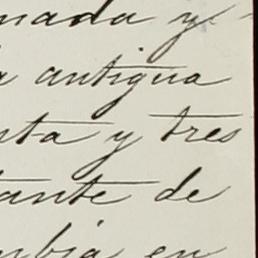 nada y
a antigua
nta y tres
tante de
mbia en